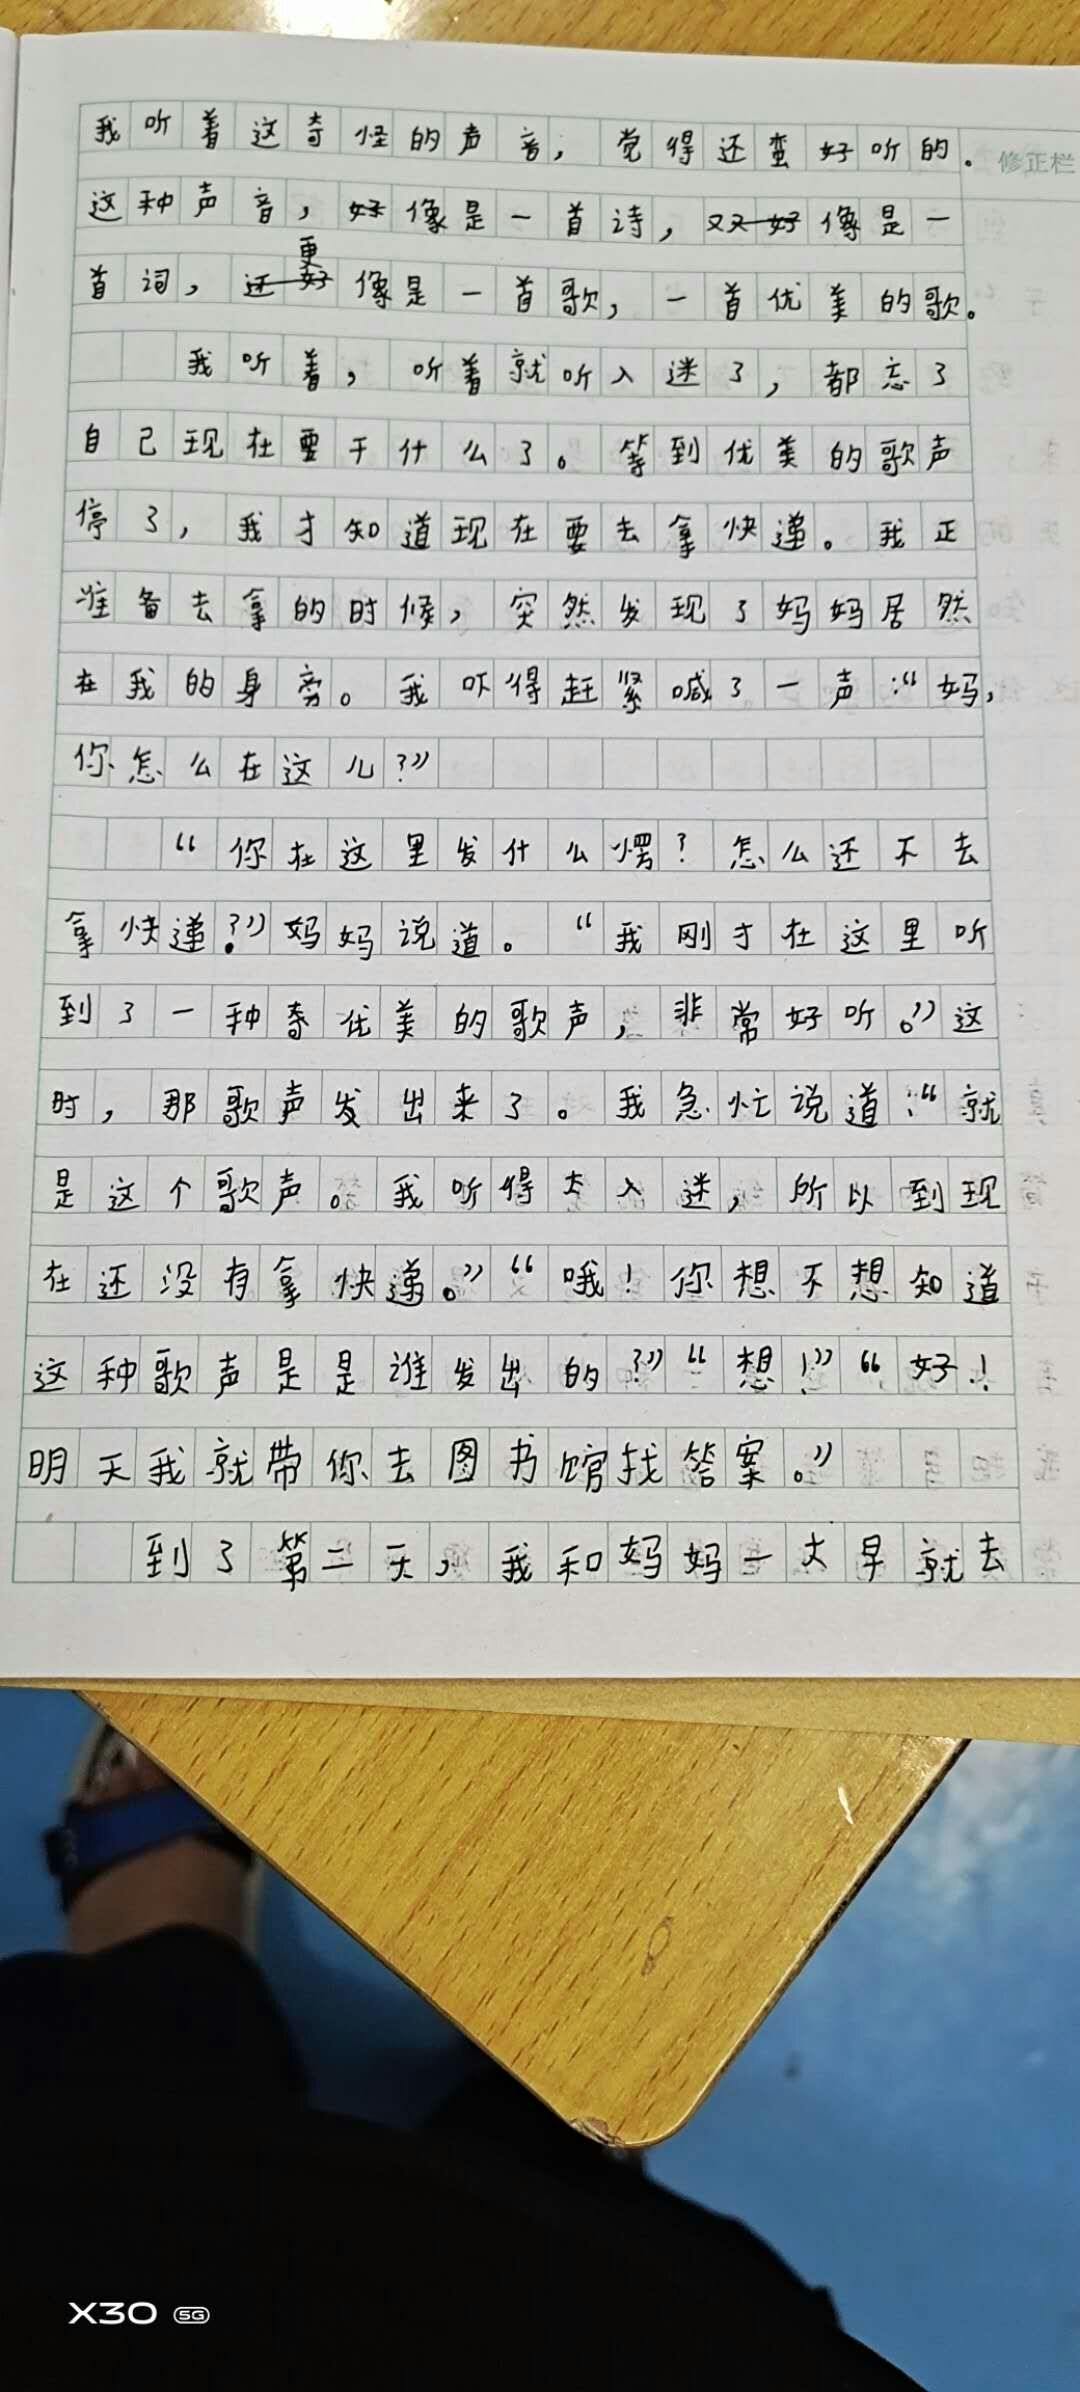 我听着这奇怪的声音，觉得还蛮好听的。
修正栏
这种声音，好像是一首诗，又又好像是一
更
首词，还好像是一首歌，一首优美的歌。
我听着，听着就听入迷了，都忘了
自己现在要干什么了。等到优美的歌声
停了，我才知道现在要去拿快递。我正
准备去拿的时候，突然发现了妈妈居然
在我的身旁。我吓得赶紧喊了一声：“妈，
你怎么在这儿？”
“你在这里发什么愣？怎么还不去
拿快递？”妈妈说道。“我刚才在这里听
到了一种奇优美的歌声，非常好听。”这
时，那歌声发出来了。我急忙说道：“就
是这个歌声。我听得太入迷，所以到现
在还没有拿快递。”“哦！你想不想知道
这种歌声是是谁发出的？”“想！”“好！
明天我就带你去图书馆找答案。”
到了第二天，我和妈妈一大早就去
X30 5G